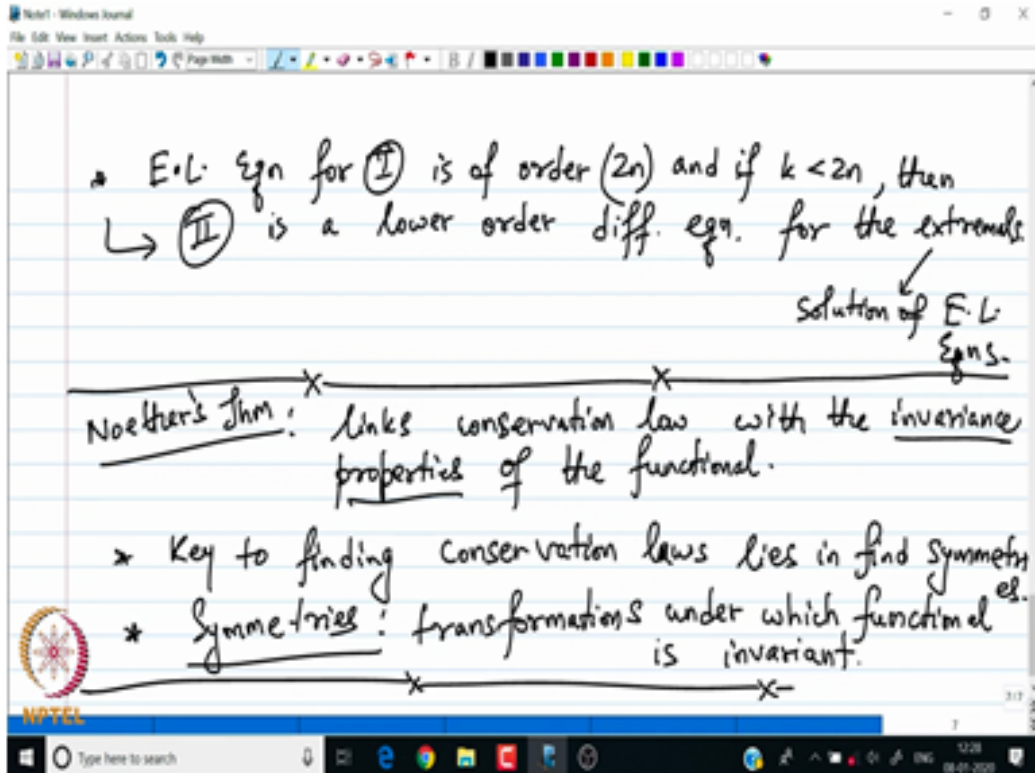 Note1 - Windows Journal
File Edit View Insert Actions Tools Help
Page Width
* E.L. Eqn for (I) is of order (2n) and if k < 2n, then
↳ (II) is a lower order diff. eqn. for the extremals.
Solution of E.L.
Eqns.
Noether's Thm: links conservation law with the invariance
properties of the functional.
* Key to finding conservation laws lies in find symmetri
es.
* Symmetries: transformations under which functional
is invariant.
NPTEL
7
Type here to search
ENG
12:28
08-01-2020